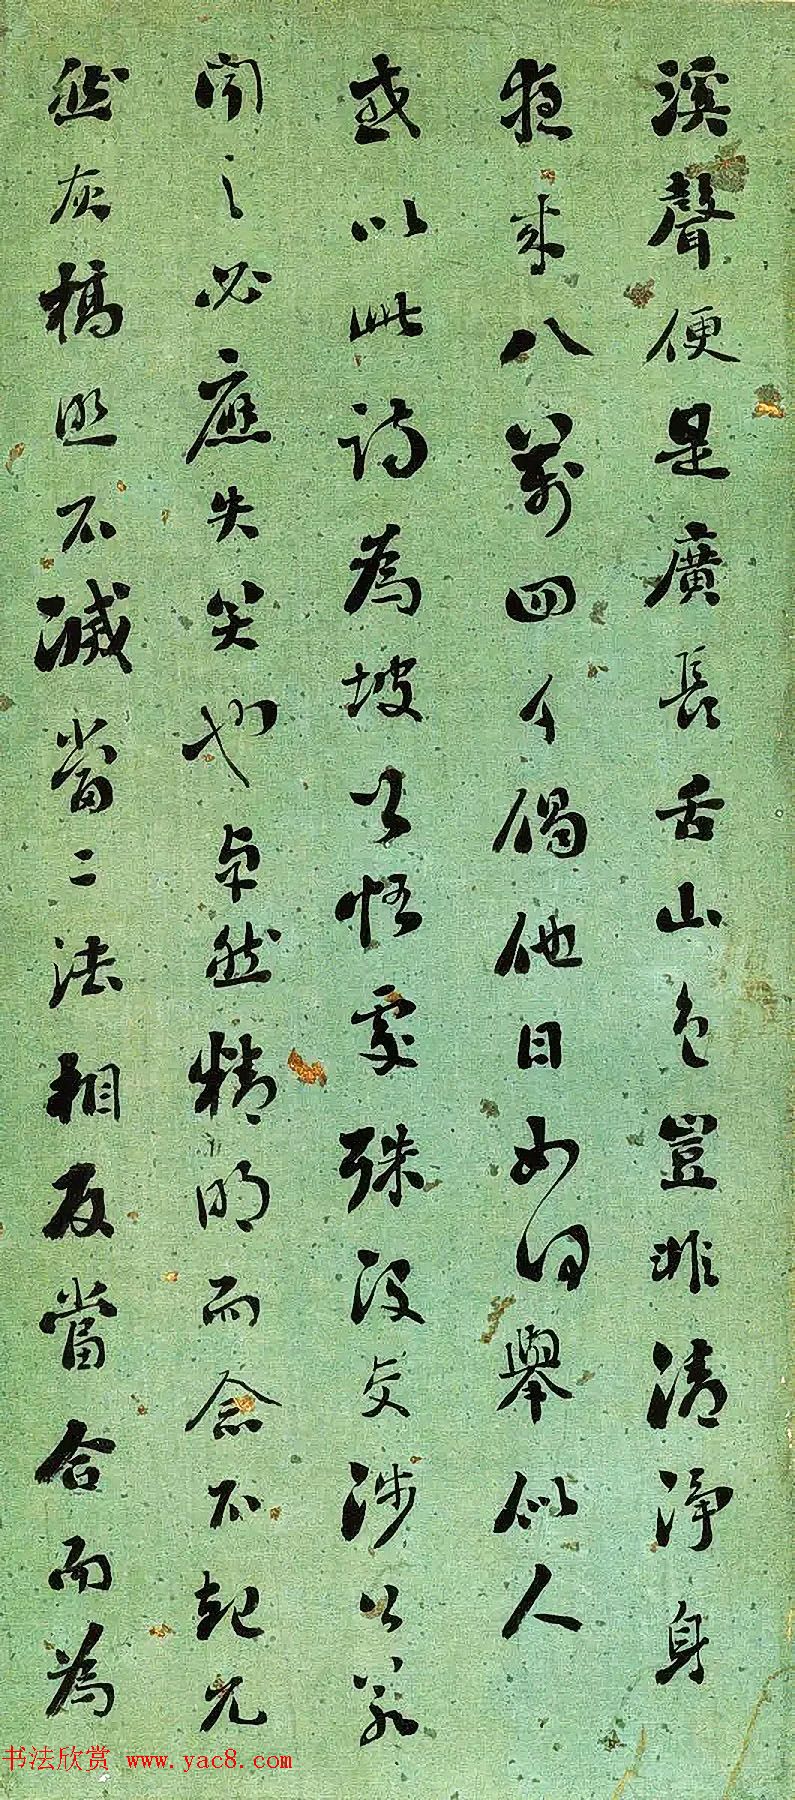 溪聲便是廣長舌山色豈非清淨身
夜來八萬四千偈他日如何舉似人
或以此詩為坡公悟處殊沒交涉公若
聞之必應失笑也卓然精明而念不起兀
然灰槁照不滅當二法相反當合而為
书法欣赏 www.yac8.com